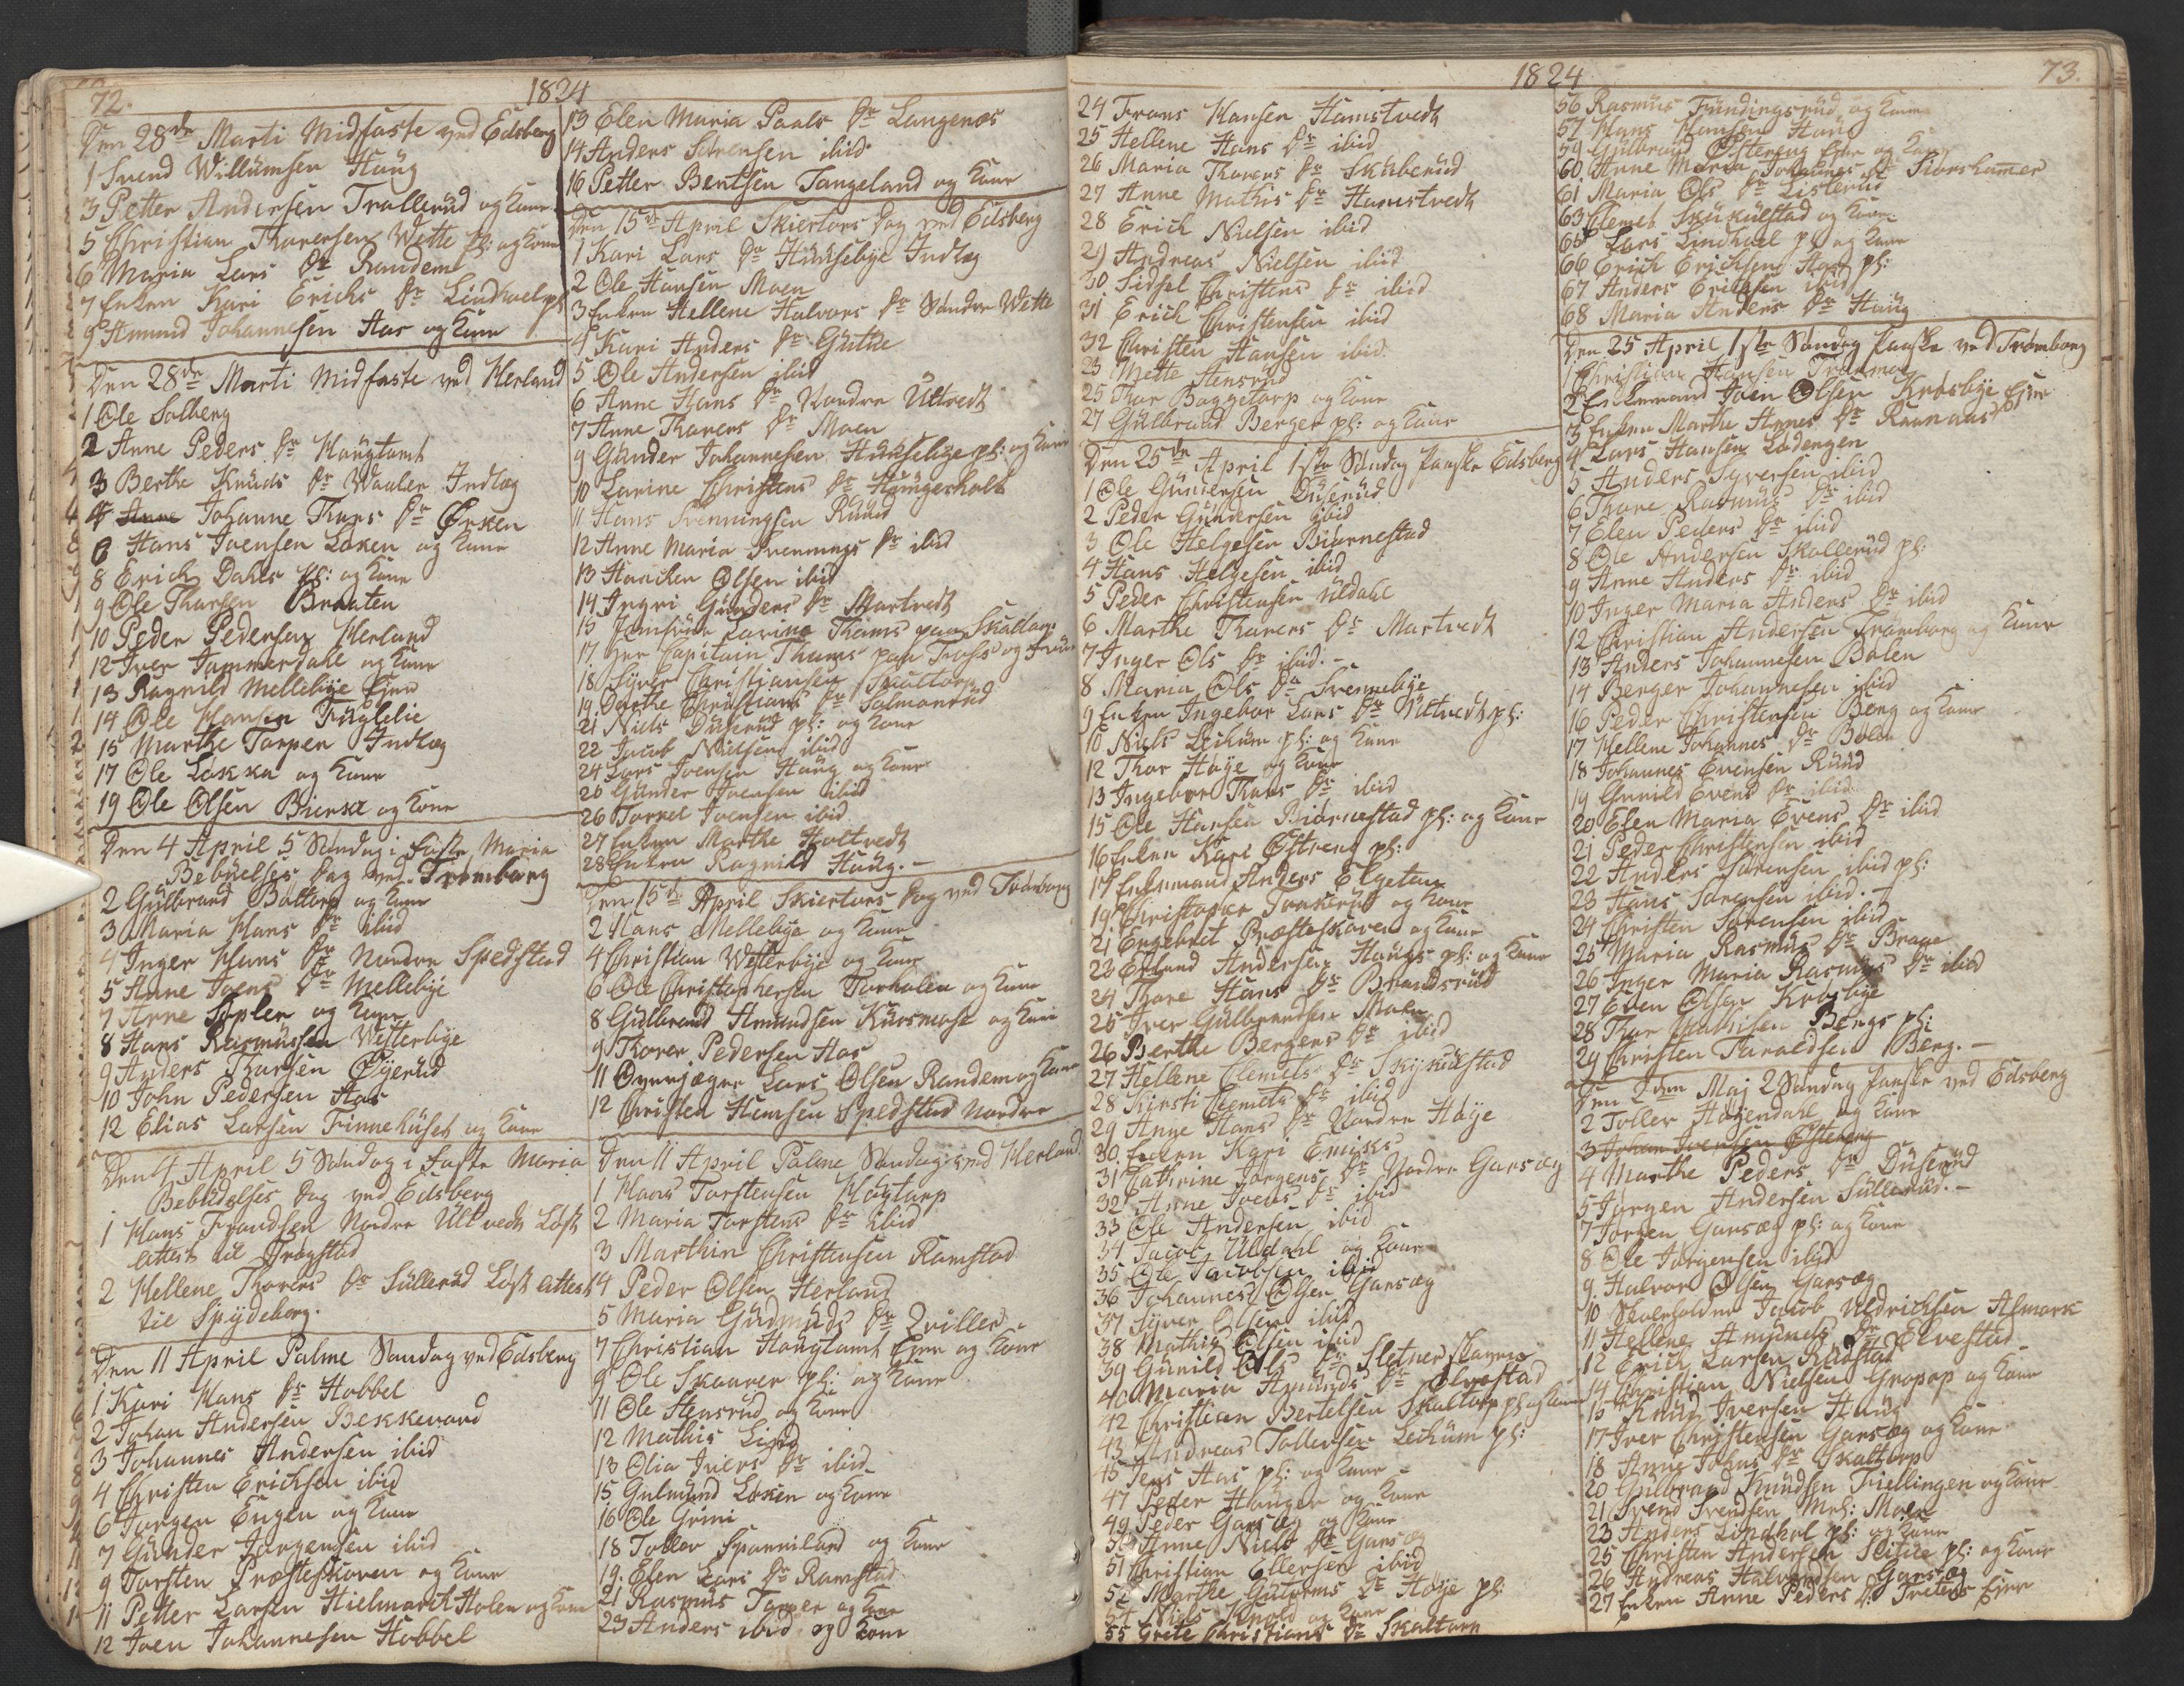 72.
1824
Den 28de Marti Midfaste ved Edsberg
1 Svend Willumsen Haug
3 Petter Andersen Trollerud og Kone
5 Christian Thoresen Wette pl: og Kone
6 Maria Lars Dr Randem
7 Enken Kari Erichs Dr Lindhoel pl
9 Amund Johannesen Aas og Kone
Den 28de Marti Midfaste ved Herland
1 Ole Solberg
2 Anne Peders Dr Haugtomt
3 Berthe Knuds Dr Waaler Indlæg
4 Johanne Thors Dr Ørken
6 Hans Joensen Løken og Kone
8 Erich Dahls pl: og Kone
9 Ole Thorsen Braaten
10 Peder Pedersen Herland
12 Iver Jammerdahl og Kone
13 Ragnild Mellebye Ejer
14 Ole Hansen Fuglelie
15 Marthe Torper Indlæg
17 Ole Løkka og Kone
19 Ole Olsen Bienså og Kone
Den 4 April 5 Søndag i Faste Maria
Bebudelses Dag ved Trømborg
2 Gulbrand Boltorp og Kone
3 Maria Hans Dr ibid
4 Inger Hans Dr Nordre Spedstad
5 Anne Joens Dr Mellebye
7 Arne Toplen og Kone
8 Hans Rasmussen Westerbye
9 Anders Thorsen Øyerud
10 John Pedersen Aas
12 Elias Larsen Finnehuset og Kone
Den 4 April 5 Søndag i Faste Maria
Bebudelses Dag ved Edsberg
1 Hans Frandsen Nordre Ultvedt Løst
attest til Trøgstad
2 Hellene Thorers Dr Sullerud Løst attest
til Spydeberg.
Den 11 April Palme Søndag ved Edsberg
1 Kari Hans Dr Hobbel
2 Johan Andersen Bekkevard
3 Johannes Andersen ibid
4 Christen Erichsen ibid
6 Jørgen Engen og Kone
7 Gunder Jørgensen ibid
9 Torsten Præsteskoven og Kone
11 Petter Larsen Hielmark Holen og Kone
12 Joen Johannesen Hobbel
13 Elen Maria Paals Dr Langenæs
14 Anders Sørensen ibid
16 Petter Bentsen Tangeland og Kone
Den 15de April Skiertors Dag ved Edsberg
1 Kari Lars Dr Huusebye Indlæg
2 Ole Hansen Moen
3 Enken Hellene Halvors Dr Søndre Wette
4 Kari Anders Dr Gutue
5 Ole Andersen ibid
6 Anne Hans Dr Nordre Ultvedt
7 Anne Thorers Dr Moen
9 Gunder Johannesen Huusebye pl: og Kone
10 Larine Christens Dr Haugerholt
11 Hans Svenningsen Ruud
12 Anne Maria Svennings Dr ibid
13 Haachen Olsen ibid
14 Ingri Gunders Dr Martvedt
15 Jomfrue Larine Thams paa Skaltorp
17 Her Capitain Thams paa Foss og Frue
18 Syver Christiansen Skaltorp
19 Dorthe Christians Dr Salmonrud
21 Niels Duserud pl: og Kone
22 Jacob Nielsen ibid
24 Lars Joensen Haug og Kone
25 Gunder Joensen ibid
26 Torkel Joensen ibid
27 Enken Marthe Holtvedt
28 Enken Ragnild Haug. -
Den 15de April Skiertors Dag ved Trømborg
2 Hans Mellebye og Kone
4 Christian Westerbye og Kone
6 Ole Christophersen Torholen og Kone
8 Gulbrand Amundsen Kuosmose og Kone
9 Thorer Pedersen Aas
11 Overjæger Lars Olsen Randem og Kone
12 Christen Hansen Spedstad Nordre
Den 11 April Palme Søndag ved Herland.
1 Hans Torstensen Høytorp
2 Maria Torstens Dr ibid
3 Marthin Christensen Ramstad
4 Peder Olsen Herland
5 Maria Gudmuds Dr Tviller
7 Christian Haugtomt Ejer og Kone
9 Ole Skaarer pl: og Kone
11 Ole Stensrud og Kone
12 Mathis Lind
13 Olia Iuers Dr ibid
15 Gulmund Løken og Kone
16 Ole Grini
18 Toller Sparriland og Kone
19. Elen Lars Dr Ramstad
21 Rasmus Torper og Kone
23 Anders ibid og Kone
1824
73.
24 Frans Hansen Hamstvedt
25 Hellene Hans Dr ibid
26 Maria Thorers Dr Skubberud
27 Anne Mathis Dr Hamstvedt
28 Erich Nielsen ibid
29 Andreas Nielsen ibid
30 Sidsel Christens Dr ibid
31 Erich Christensen ibid
32 Christen Hansen ibid.
23 Mette Stensrud
25 Thor Baggetorp og Kone
27 Gulbrand Berger pl: og Kone
Den 25de April 1ste Søndag Paaske Edsberg
1 Ole Gundersen Duserud
2 Peder Gundersen ibid
3 Ole Helgesen Biørnestad
4 Hans Helgesen ibid
5 Peder Christensen Uldahl
6 Marthe Thorers Dr Martvedt
7 Inger Ols Dr ibid. -
8 Maria Ols Dr Svennebye
9 Enken Ingebor Lars Dr Ultvedt pl:
10 Niels Leikum pl: og Kone
12 Thor Høye og Kone
13 Ingebor Thors Dr ibid
15 Ole Hansen Biørnestad pl: og Kone
16 Enken Kari Østreng pl:
17 Enkemand Anders Elgetun
19 Christopher Toskerud og Kone
21 Engebret Præsteskoven og Kone
23 Erland Andersen Haugs pl: og Kone
24 Thore Hans Dr Brandsrud
25 Iver Gulbrandsen Moen
26 Berthe Bergers Dr ibid
27 Hellene Clemets Dr Skykulstad
28 Kirsti Clemets Dr ibid
29 Anne Hans Dr Nordre Høye
30 Enken Kari Emiks
31 Cathrine Jørgens Dr Nordre Garsæg
32 Anne Joens Dr ibid
33 Ole Andersen ibid
34 Jacob Uldahl og Kone
35 Ole Jacobsen ibid
36 Johannes Olsen Garsæg
37 Syver Olsen ibid
38 Mathis Olsen ibid
39 Gunild Ols Dr Sletner
40 Maria Amunds Dr Elvestad
42 Christian Bertelsen Skaltorp pl og Kone
43 Andreas Tollersen Leikum pl:
45 Jens Aas pl: og Kone -
47 Peder Hauger og Kone
49 Peder Garsæg og Kone
50 Anne Niels Dr Garsæg
51 Christian Ellersen ibid
52 Marthe Gutorms Dr Høye pl:
54 Niels Knold og Kone
55 Grete Christians Dr Skaltorp
56 Rasmus Fundingsrud og Kone
57 Hans Hansen Haug
59 Gulbrand Østereng Ejer og Kone
60 Anne Maria Johannes Dr Slorshamer
61 Maria Ols Dr Listerud
63 Clemet Skukulstad og Kone
65 Lars Lindhoel pl og Kone
66 Erich Erichsen Aas pl:
67 Anders Erichsen ibid
68 Maria Anders Dr Haug
Den 25 April 1ste Søndag Paaske ved Trømborg
1 Christian Hansen
2 Enkemand Joen Olsen Krosbye Ejer
3 Enken Marthe Arnes Dr
4 Lars Hansen Lødengen
5 Anders Syversen ibid
6 Thore Rasmus Dr ibid
7 Elen Peders Dr ibid
8 Ole Andersen Skollerud pl:
9 Anne Anders Dr ibid
10 Inger Maria Anders Dr ibid
12 Christian Andersen Trømborg og Kone
13 Anders Johannesen Bolen
14 Berger Johannesen ibid
16 Peder Christensen Berg og Kone
17 Hellene Johannes Dr Bolen
18 Johannes Evensen Ruud
19 Gunild Evens Dr ibid
20 Elen Maria Evens Dr ibid
21 Peder Christensen ibid
22 Anders Sørensen ibid pl:
23 Hans Sørensen ibid. -
24 Christen Sørensen ibid
25 Maria Rasmus Dr Brage
26 Inger Maria Rasmus Dr ibid
27 Even Olsen Krosbye
28 Thor Mathisen Bergs pl:
29 Christen Taraldsen Berg. -
Den 2den Maj 2 Søndag Paaske ved Edsberg
2 Toller Høyendahl og Kone
3 Johan Joensen Østereng
4 Marthe Peders Dr Duserud
5 Jørgen Andersen Sullerud. -
7 Jørgen Garsæg pl: og Kone
8 Ole Jørgensen ibid
9. Halvor Olsen Garsæg
10 Skoleholder Jacob Uldrichsen Almark
11 Hellene Amunds Dr Elvestad
12 Erich Larsen Rudstad
14 Christian Nielsen Gropop og Kone
15 Knud Iversen Haug
17 Iver Christensen Garsæg og Kone
18 Anne Johns Dr Skaltorp
20 Gulbrand Knudsen Fiellingen og Kone
21 Svend Svendsen Moen
23 Anders Lindhol pl: og Kone
25 Christen Andersen Slitue pl: og Kone
26 Andreas Halvorsen Garsæg
27 Enken Anne Peders Dr Ejer